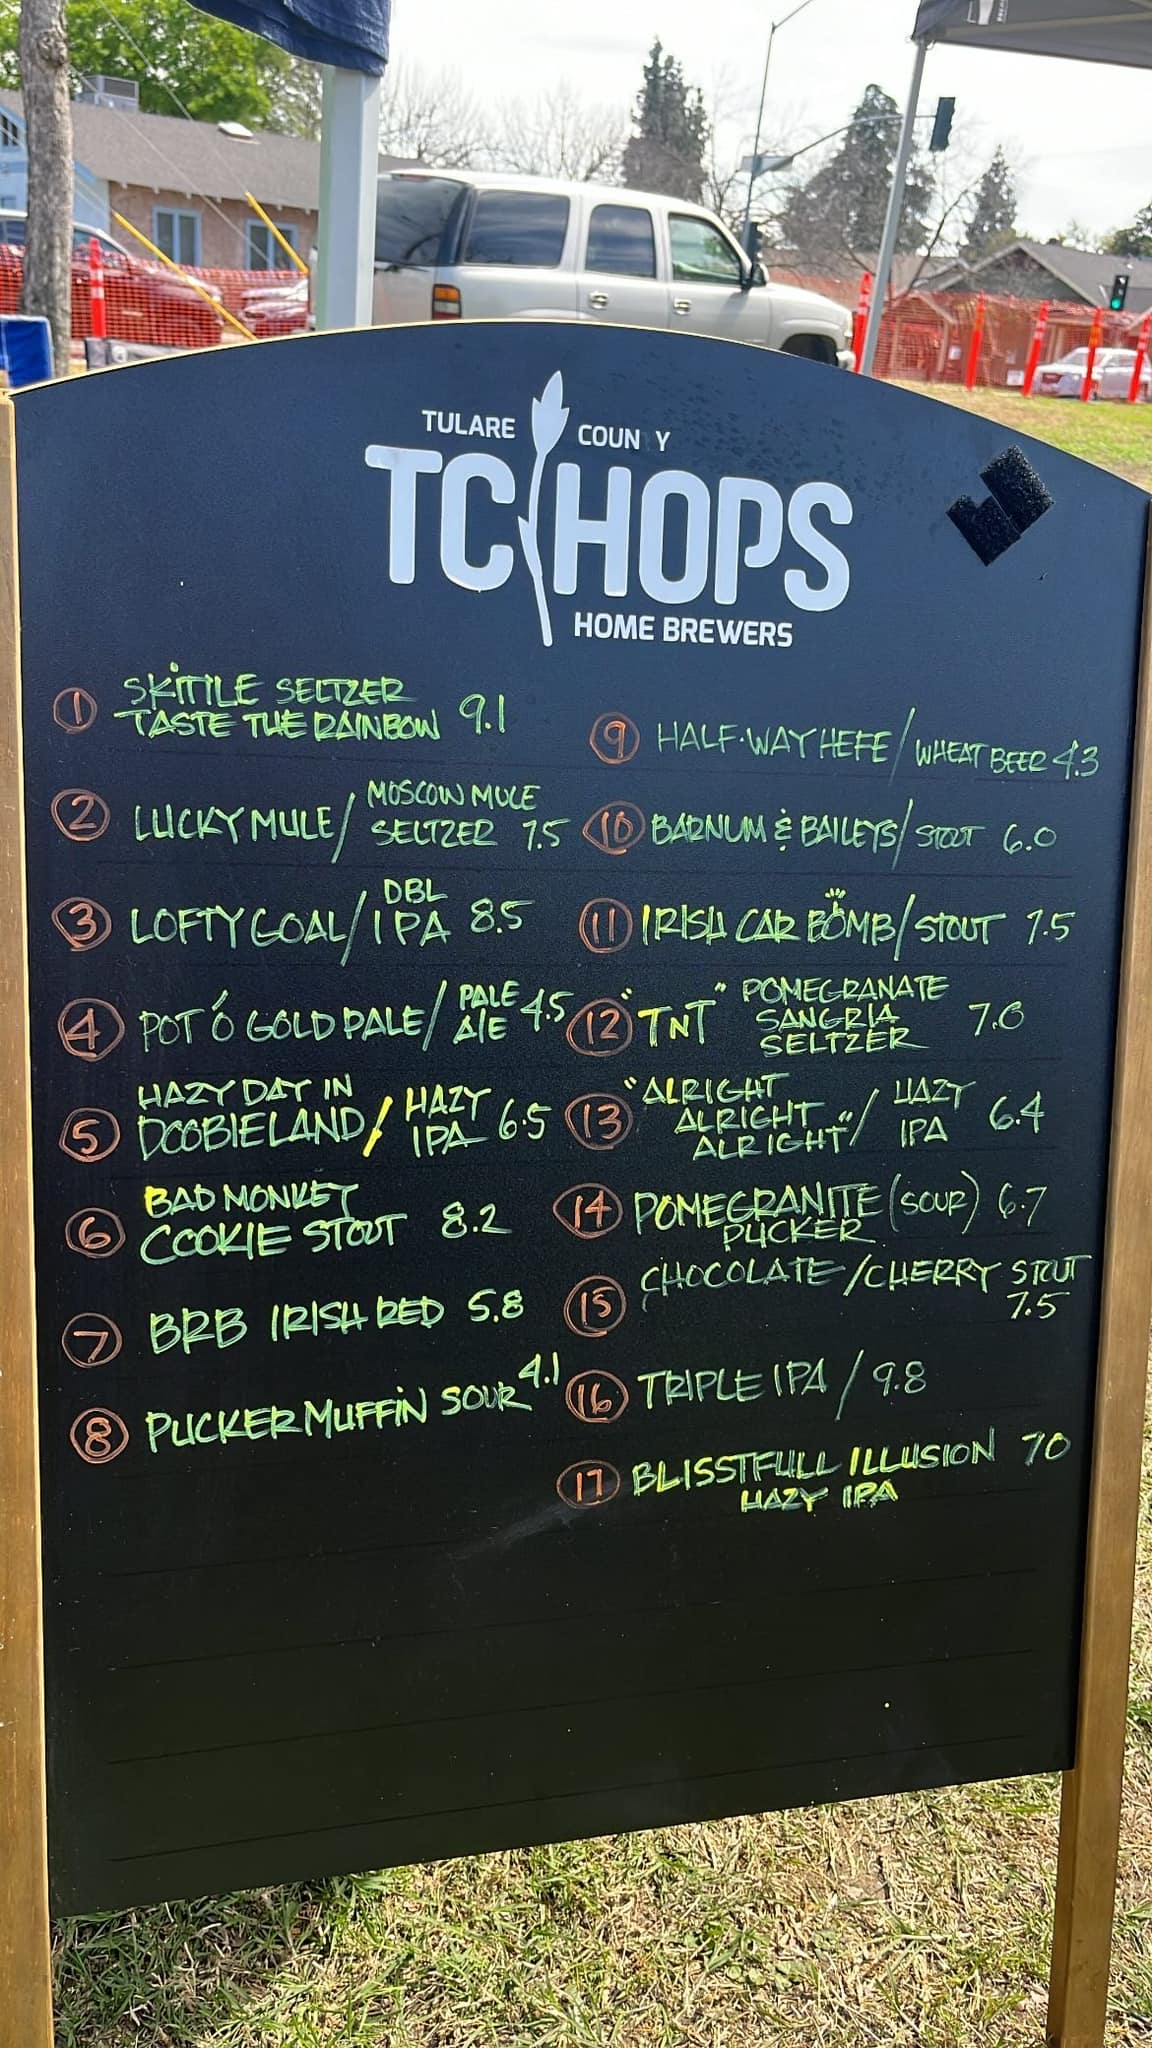 TULARE COUN Y
TC HOPS
HOME BREWERS
1 SKITTLE SELTZER
TASTE THE RAINBOW 9.1
2 LUCKY MULE / MOSCOW MULE
SELTZER 7.5
3 LOFTY GOAL / DBL
IPA 8.5
4 POT Ó GOLD PALE / PALE
ALE 4.5
5 HAZY DAY IN
DOOBIELAND / HAZY
IPA 6.5
6 BAD MONKEY
COOKIE STOUT 8.2
7 BRB IRISH RED 5.8
8 PUCKER MUFFIN SOUR 4.1
9 HALF-WAY HEFE / WHEAT BEER 4.3
10 BARNUM & BAILEYS / STOUT 6.0
11 IRISH CAR BOMB / STOUT 7.5
12 "TNT" POMEGRANATE
SANGRIA
SELTZER 7.0
13 "ALRIGHT
ALRIGHT
ALRIGHT" / HAZY
IPA 6.4
14 POMEGRANITE (SOUR) 6.7
PUCKER
15 CHOCOLATE / CHERRY STOUT
7.5
16 TRIPLE IPA / 9.8
17 BLISSTFULL ILLUSION 70
HAZY IPA